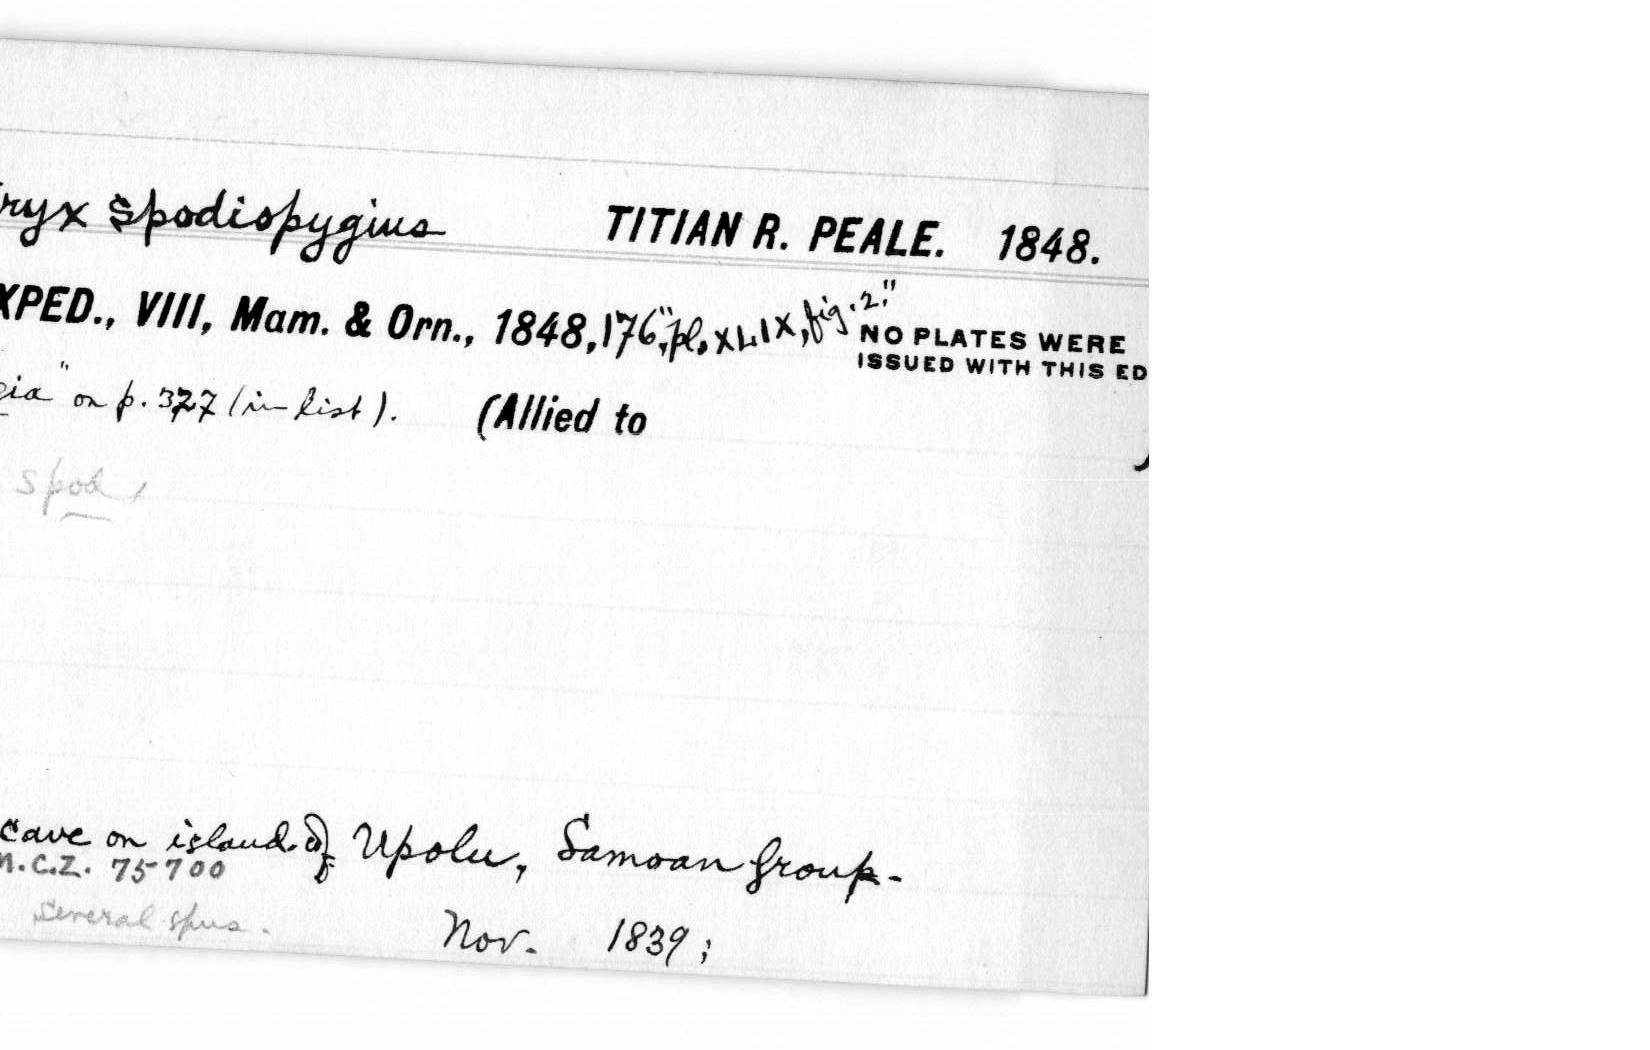 ryx spodiopygius TITIAN R. PEALE. 1848.
XPED., VIII, Mam. & Orn., 1848, 176, "pl. XLIX, fig. 2." NO PLATES WERE
ISSUED WITH THIS ED
gia" on p. 327 (in list). (Allied to )
spod.
cave on island of Upolu, Samoan Group.
M.C.Z. 75700
several spns. Nov. 1839;